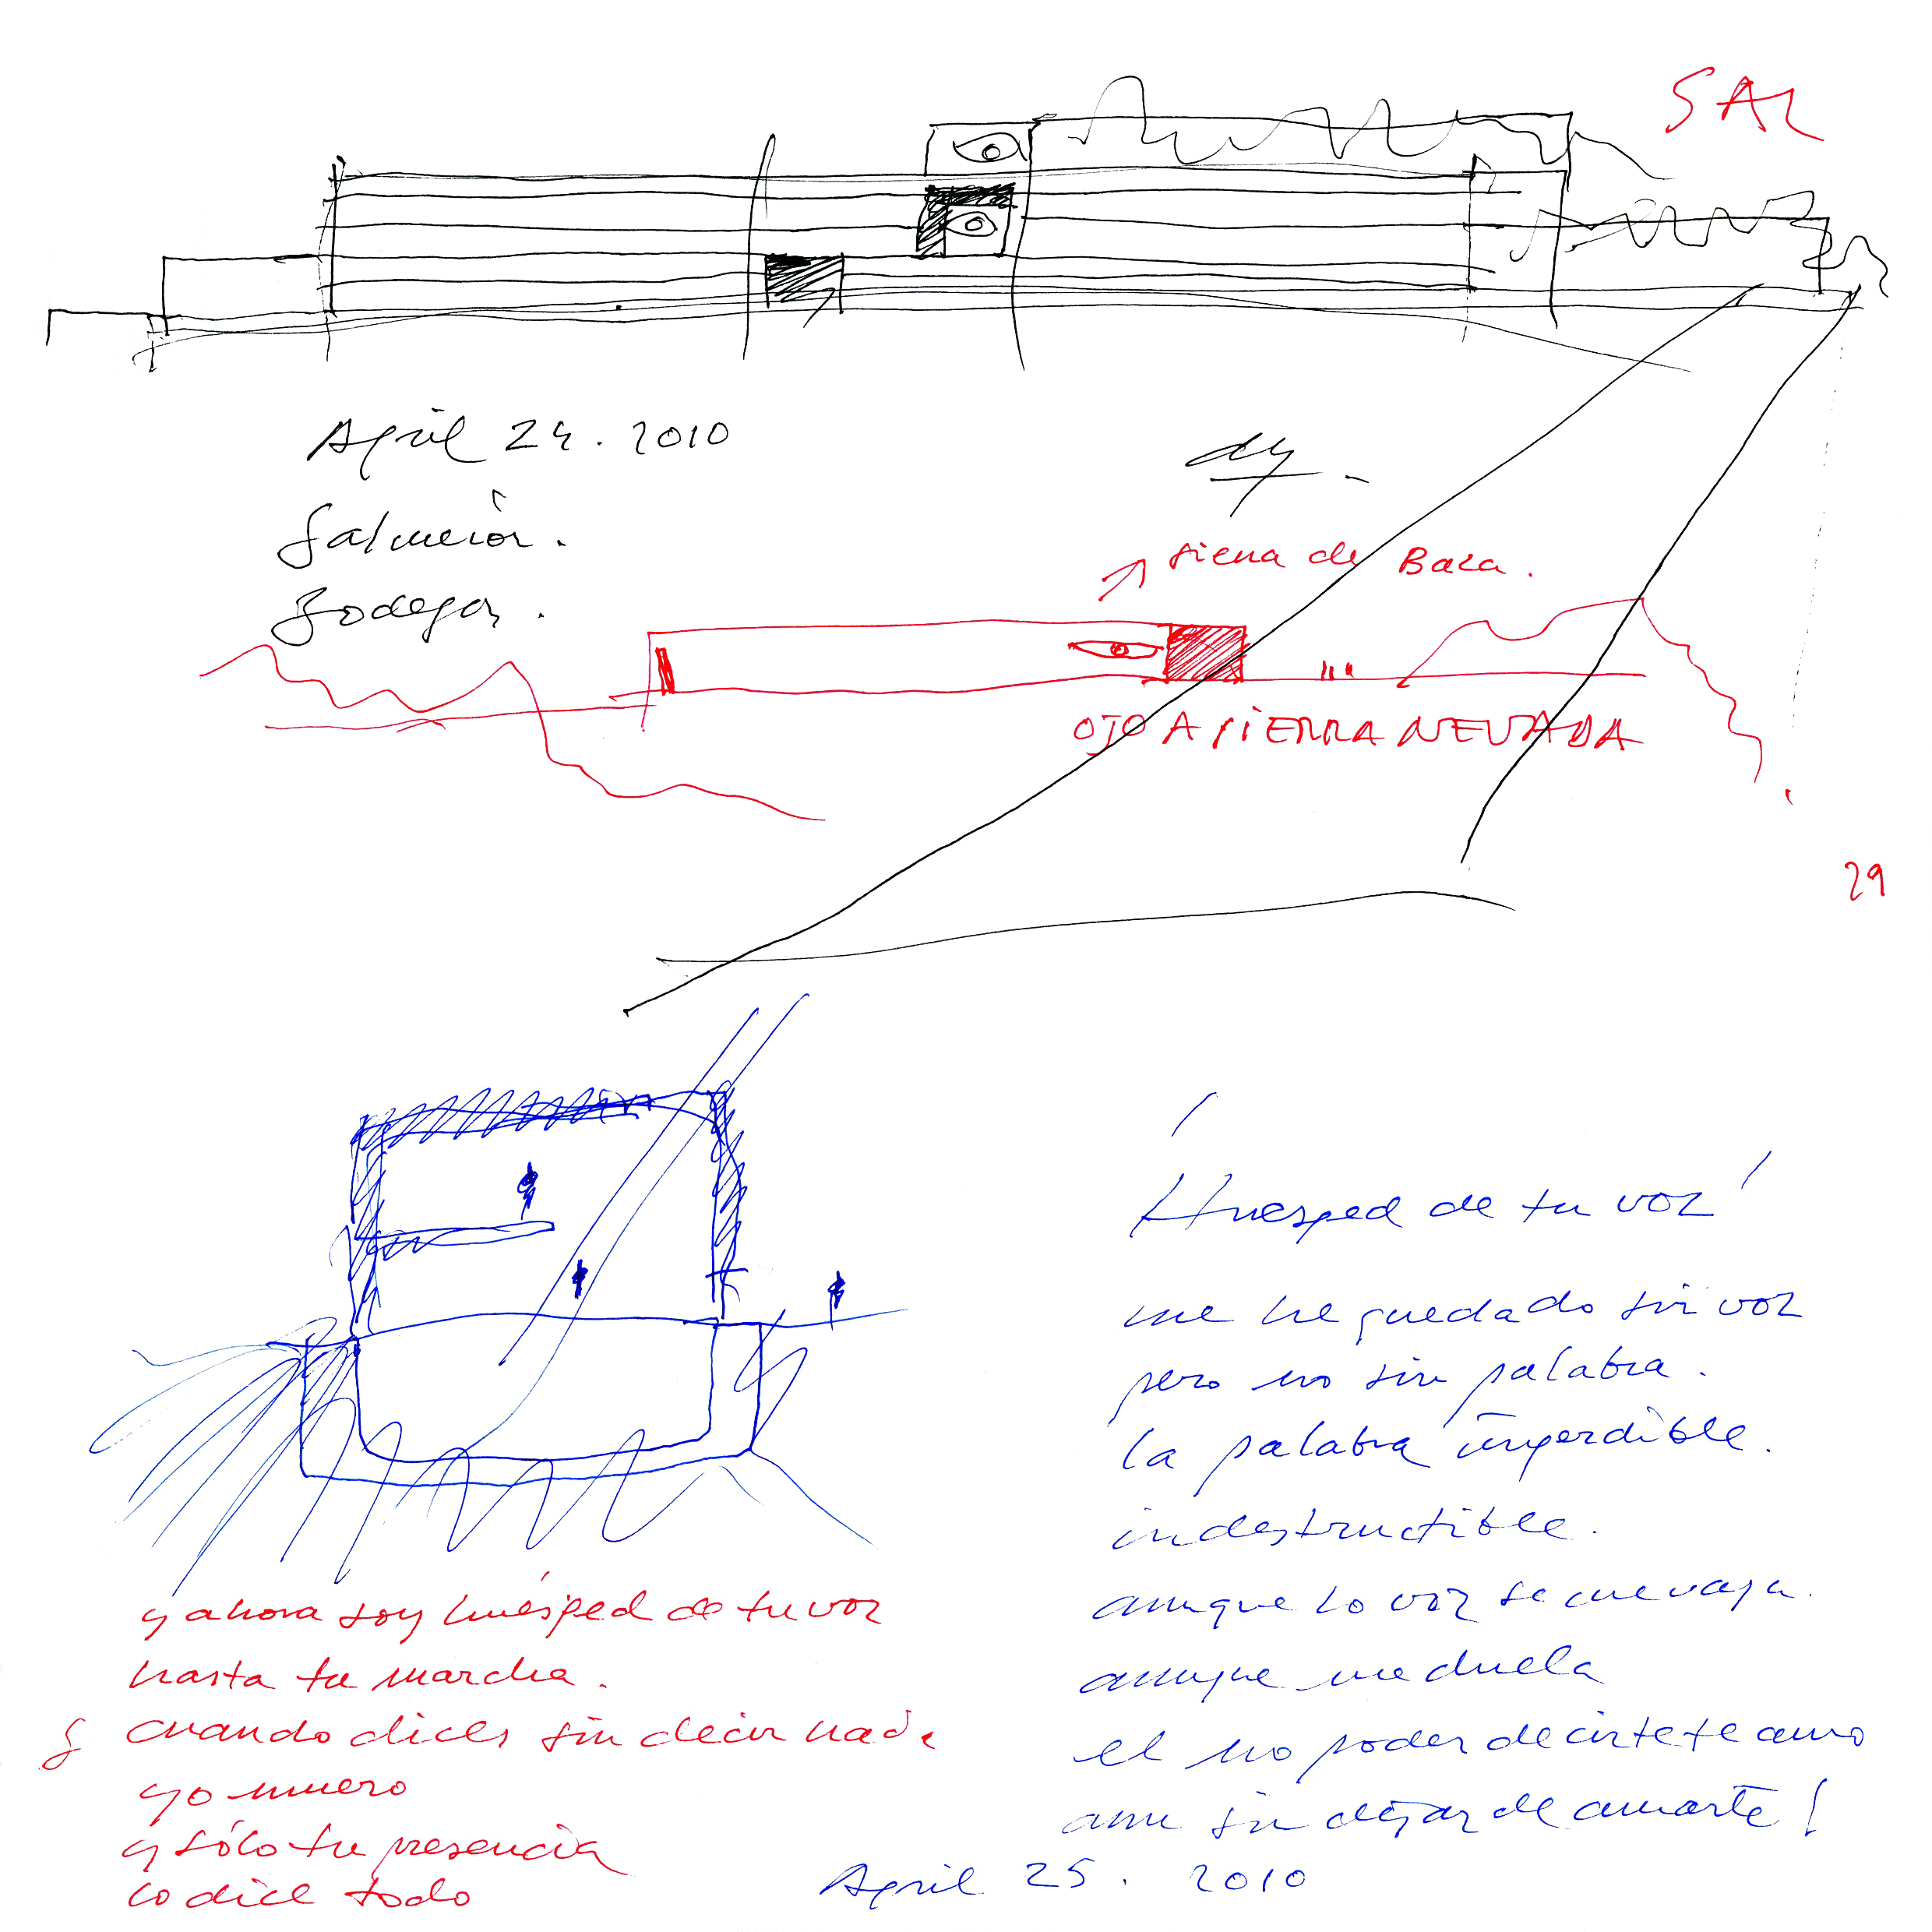 SAL
April 24. 2010
Salmerón.
Bodegas.
sierra de Baza.
OJO A SIERRA NEVADA
29
Huésped de tu voz
me he quedado sin voz
pero no sin palabra.
la palabra imperdible.
indestructible.
aunque la voz se me vaya.
aunque me duela
el no poder decirte te amo
aun sin dejar de amarte!
April 25. 2010
y ahora soy huésped de tu voz
hasta tu marcha.
cuando dices sin decir nada
yo muero
y sólo tu presencia
lo dice todo